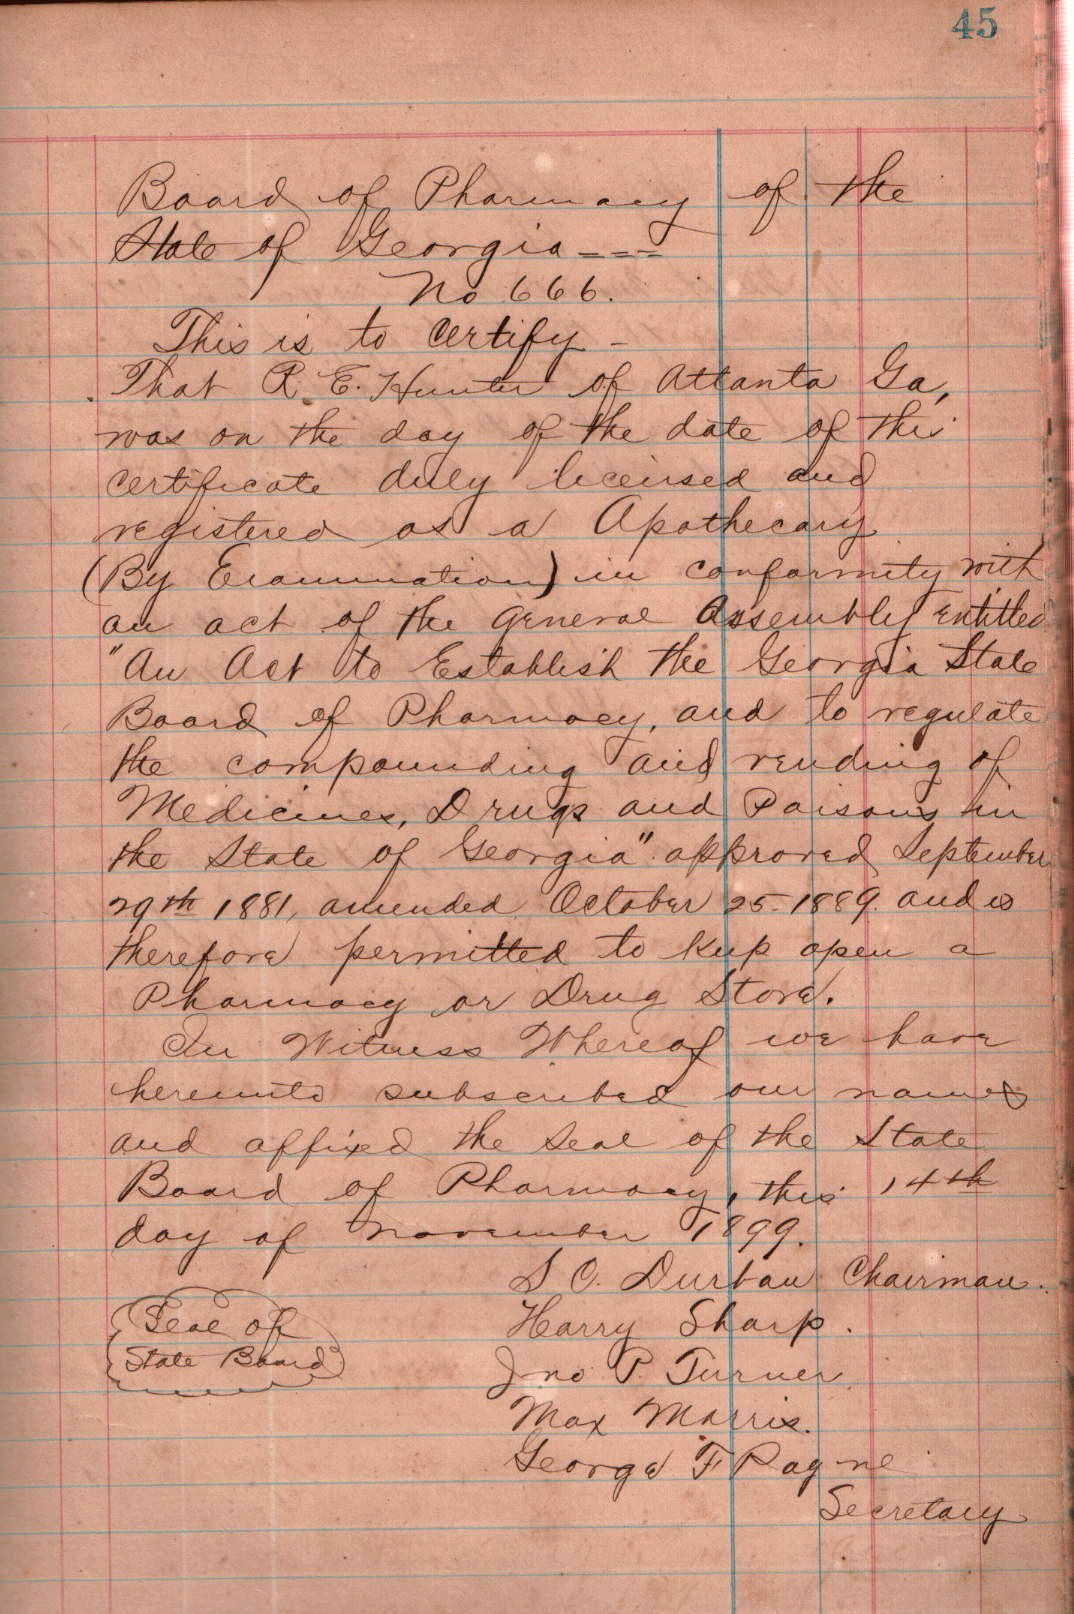 45
Board of Pharmacy of the
State of Georgia ---
No 666.
This is to certify -
That R. E. Hunter of Atlanta Ga,
was on the day of the date of this
certificate duly licensed and
registered as a Apothecary
(By Examination) in conformity with
an act of the general Assembly entitled
"An Act to Establish the Georgia State
Board of Pharmacy, and to regulate
the compounding and vending of
Medicines, Drugs and Poisons in
the State of Georgia" approved September
29th 1881, amended October 25. 1889. and is
therefore permitted to keep open a
Pharmacy or Drug Store.
In Witness Whereof we have
hereunto subscribed our names
and affixed the seal of the State
Board of Pharmacy, this 14th
day of november 1899.
S O. Durban Chairman.
Harry Sharp.
Seal of
State Board
Jno P. Turner.
Max Morris.
George F Payne
Secretary